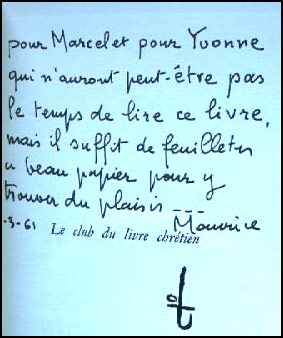 pour Marcel et pour Yvonne
qui n'auront peut-être pas
le temps de lire ce livre,
mais il suffit de feuilleter
u beau papier pour y
trouver du plaisir ---
Maurice
-3-61 Le club du livre chrétien